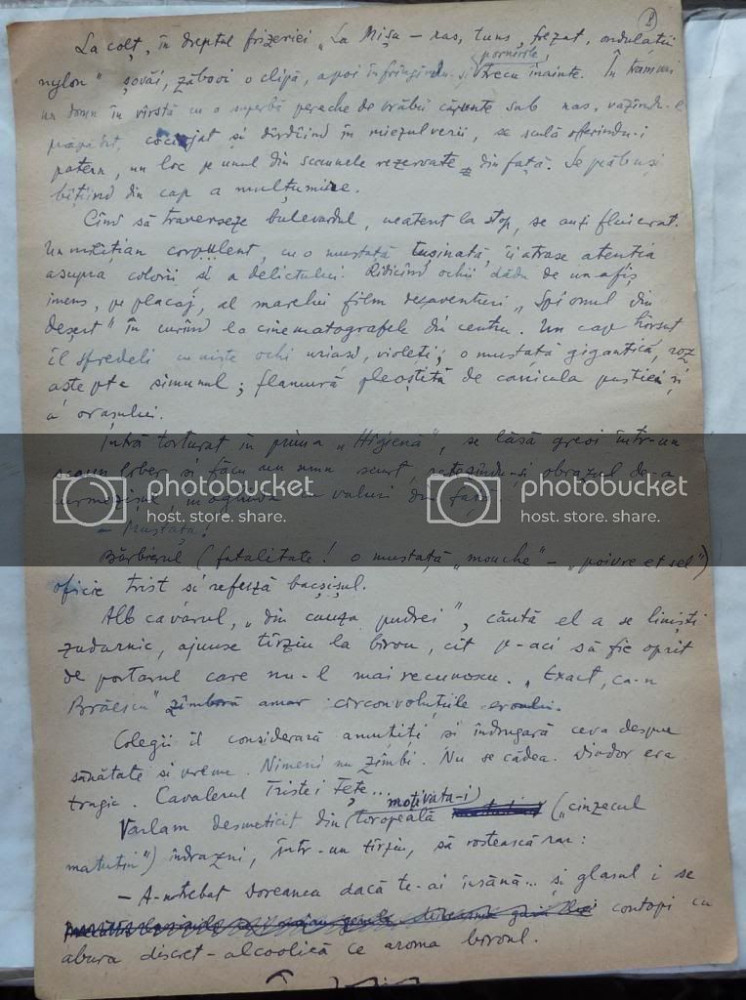 1
La colț, în dreptul frizeriei „La Mișa – ras, tuns, frezat, ondulații
nylon" șovăi, zăbovi o clipă, apoi înfrîngîndu-și pornirile, trecu înainte. În tramvai
un domn în vîrstă cu o superbă pereche de vrăbii cărunte sub nas, văzîndu-l
prăpădit, cocîrjat și dîrdîind în miezul verii, se sculă oferindu-i
patern, un loc pe unul din scaunele rezervate din față. Se prăbuși
bîțîind din cap a mulțumire.
Cînd să traverseze bulevardul, neatent la stop, se auzi fluierat.
Un milițian corpulent, cu o mustață tușinată, îi atrase atenția
asupra colorii și a delictului. Ridicînd ochii dădu de un afiș
imens, pe placaj, al marelui film de aventuri „Spionul din
deșert" în curînd la cinematografele din centru. Un cap hirsut
îl sfredeli cu niște ochi uriași, violeți; o mustață gigantică, roz
aștepta simunul; flamură pleoștită de canicula pustiei și
a orașului.
Intră torturat în prima „Higienă", se lăsă greoi într-un
scaun liber și făcu un semn scurt, obrazul
valuri din față.
– Mustața!
Bărbierul (fatalitate! o mustață „mouche" – „poivre et sel")
oficie trist și refuză bacșișul.
Alb ca varul, „din cauza pudrei", căută el a se liniști
zadarnic, ajunse tîrziu la birou, cît p-aci să fie oprit
de portarul care nu-l mai recunoscu. „Exact, ca-n
Brăescu" zîmbără amar circonvoluțiile eroului.
Colegii îl considerară amuțiți și îndrugară ceva despre
sănătate și vreme. Nimeni nu zîmbi. Nu se cădea. Diodor era
tragic. Cavalerul Tristei Fețe...
Varlam desmeticit din (toropeală motivata-i) („cinzecul
matutin") îndrăzni, într-un tîrziu, să rostească rar:
– A-ntrebat Doreanca dacă te-ai însănă... și glasul i se
contopi cu
abura discret-alcoolică ce aroma biroul.
photobucket
host. store. share.
photobucket
host. store. share.